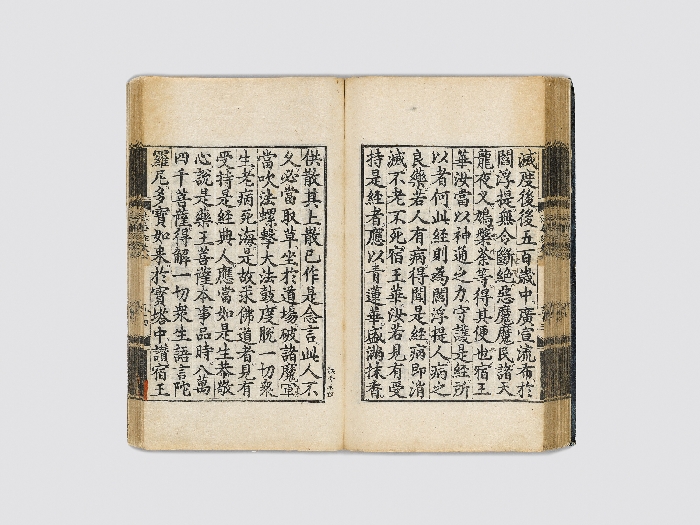 滅度後後五百歲中廣宣流布於
閻浮提無令斷絕惡魔魔民諸天
龍夜叉鳩槃荼等得其便也宿王
華汝當以神通之力守護是經所
以者何此經則爲閻浮提人病之
良藥若人有病得聞是經病即消
滅不老不死宿王華汝若見有受
持是經者應以青蓮華盛滿抹香
供散其上散已作是念言此人不
久必當取草坐於道場破諸魔軍
當吹法螺擊大法鼓度脫一切衆
生老病死海是故求佛道者見有
受持是經典人應當如是生恭敬
心說是藥王菩薩本事品時八萬
四千菩薩得解一切衆生語言陀
羅尼多寶如來於寶塔中讚宿王